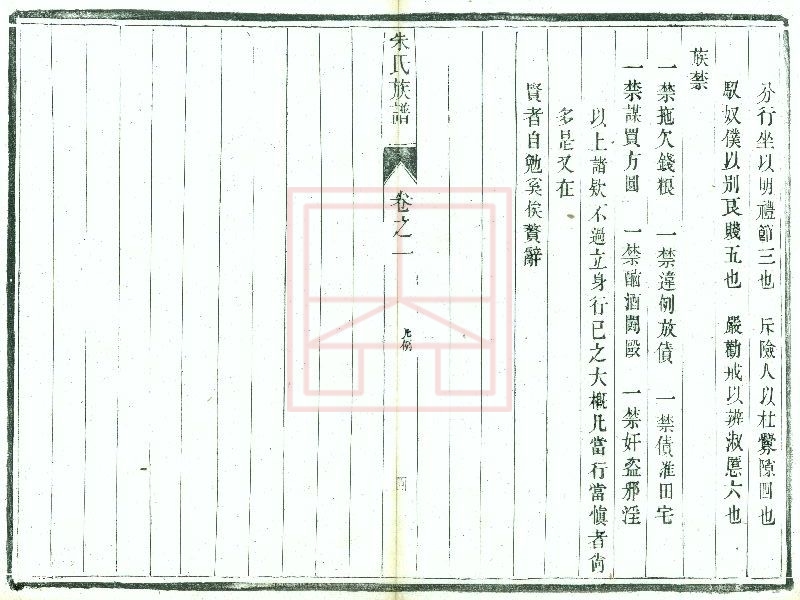 分行坐以明禮節三也　斥險人以杜釁隙四也
馭奴僕以別良賤五也　嚴勸戒以辨淑慝六也
族禁
一禁拖欠錢粮　一禁違例放債　一禁債准田宅
一禁謀買方圓　一禁酗酒鬪毆　一禁奸盜邪淫
以上諸欵不過立身行已之大概凡當行當慎者尙
多是又在
賢者自勉奚俟贅辭
朱氏族譜　卷之一　凡例　四